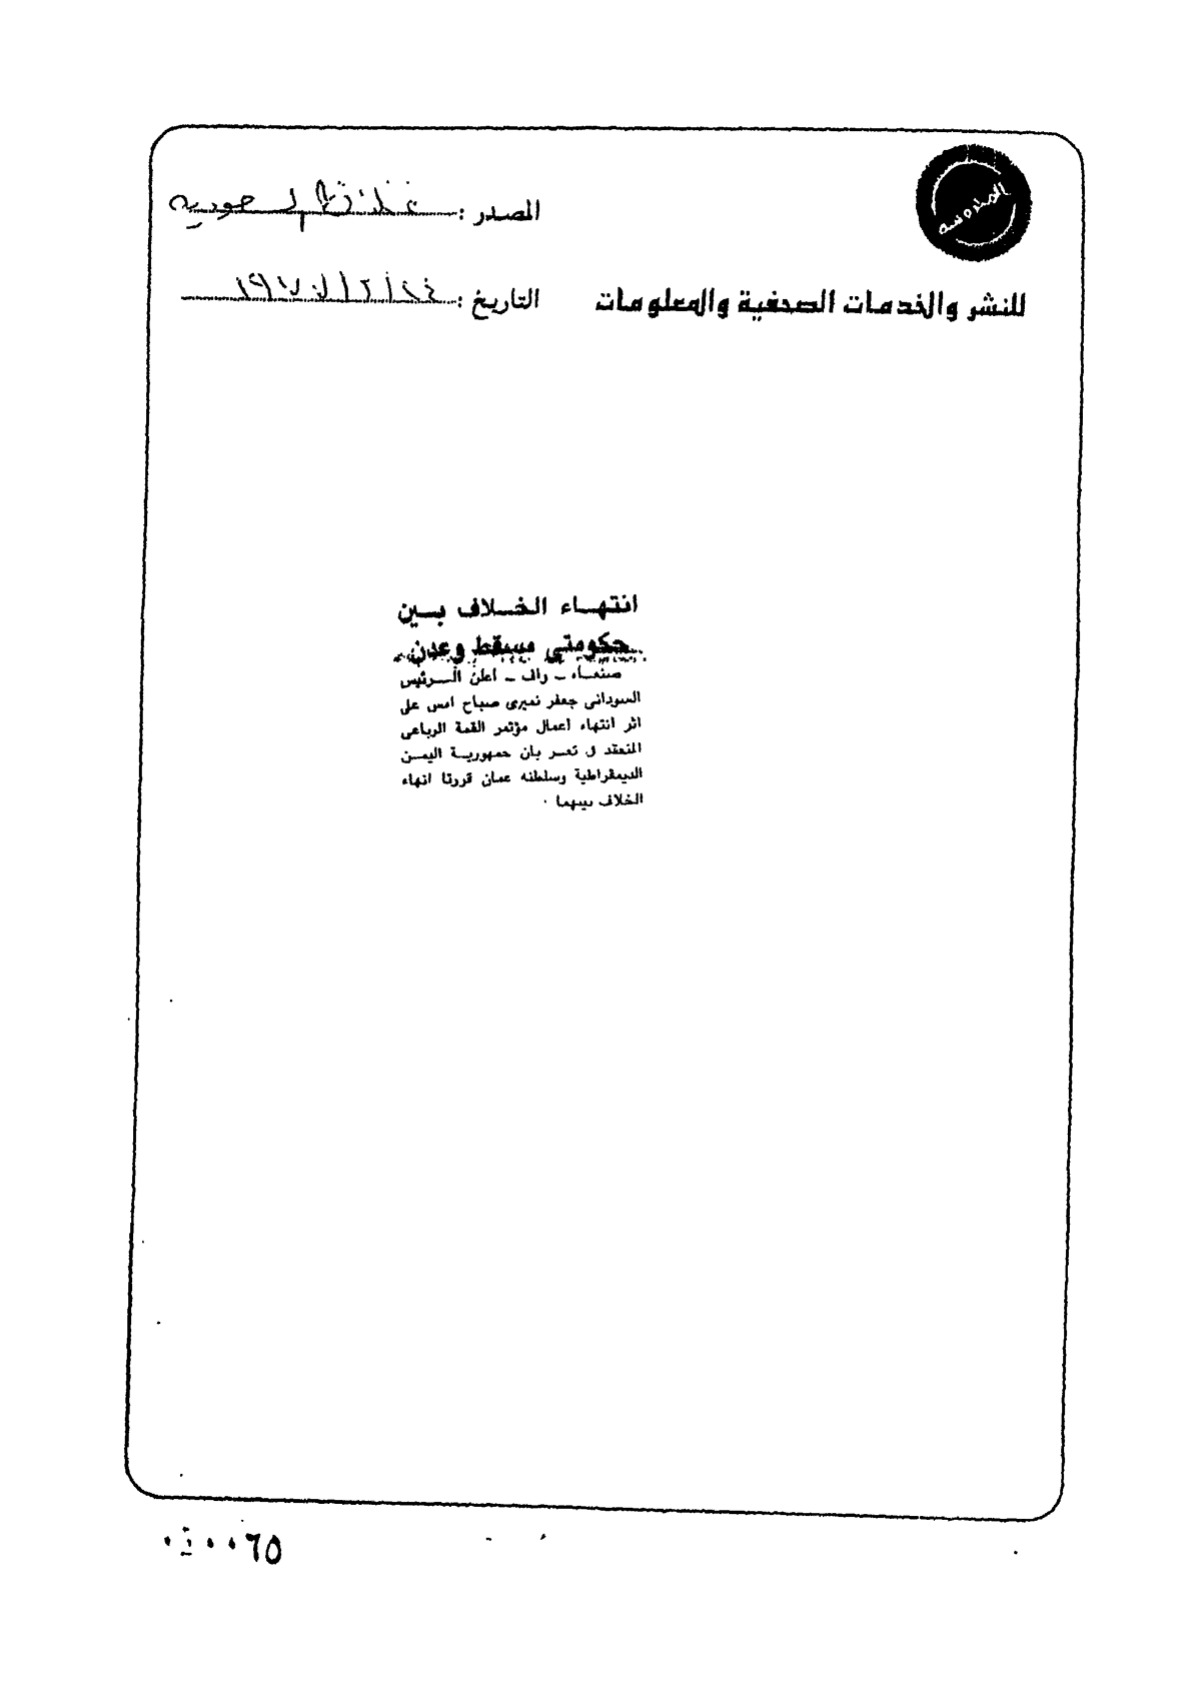 المحروسه
المصدر : عكاظ السعوديه
للنشر والخدمات الصحفية والمعلومات
التاريخ : ٢٤ / ٣ / ١٩٧٧
انتهـاء الخـلاف بـين
حكومتي مسقط وعدن
صنعـاء ـ واف ـ اعلن الـرئيس
السودانى جعفر نميرى صباح امس على
اثر انتهاء اعمال مؤتمر القمة الرباعى
المنعقد فى تعـز بان جمهوريـة اليمـن
الديمقراطية وسلطنه عمان قررتا انهاء
الخلاف بينهما .